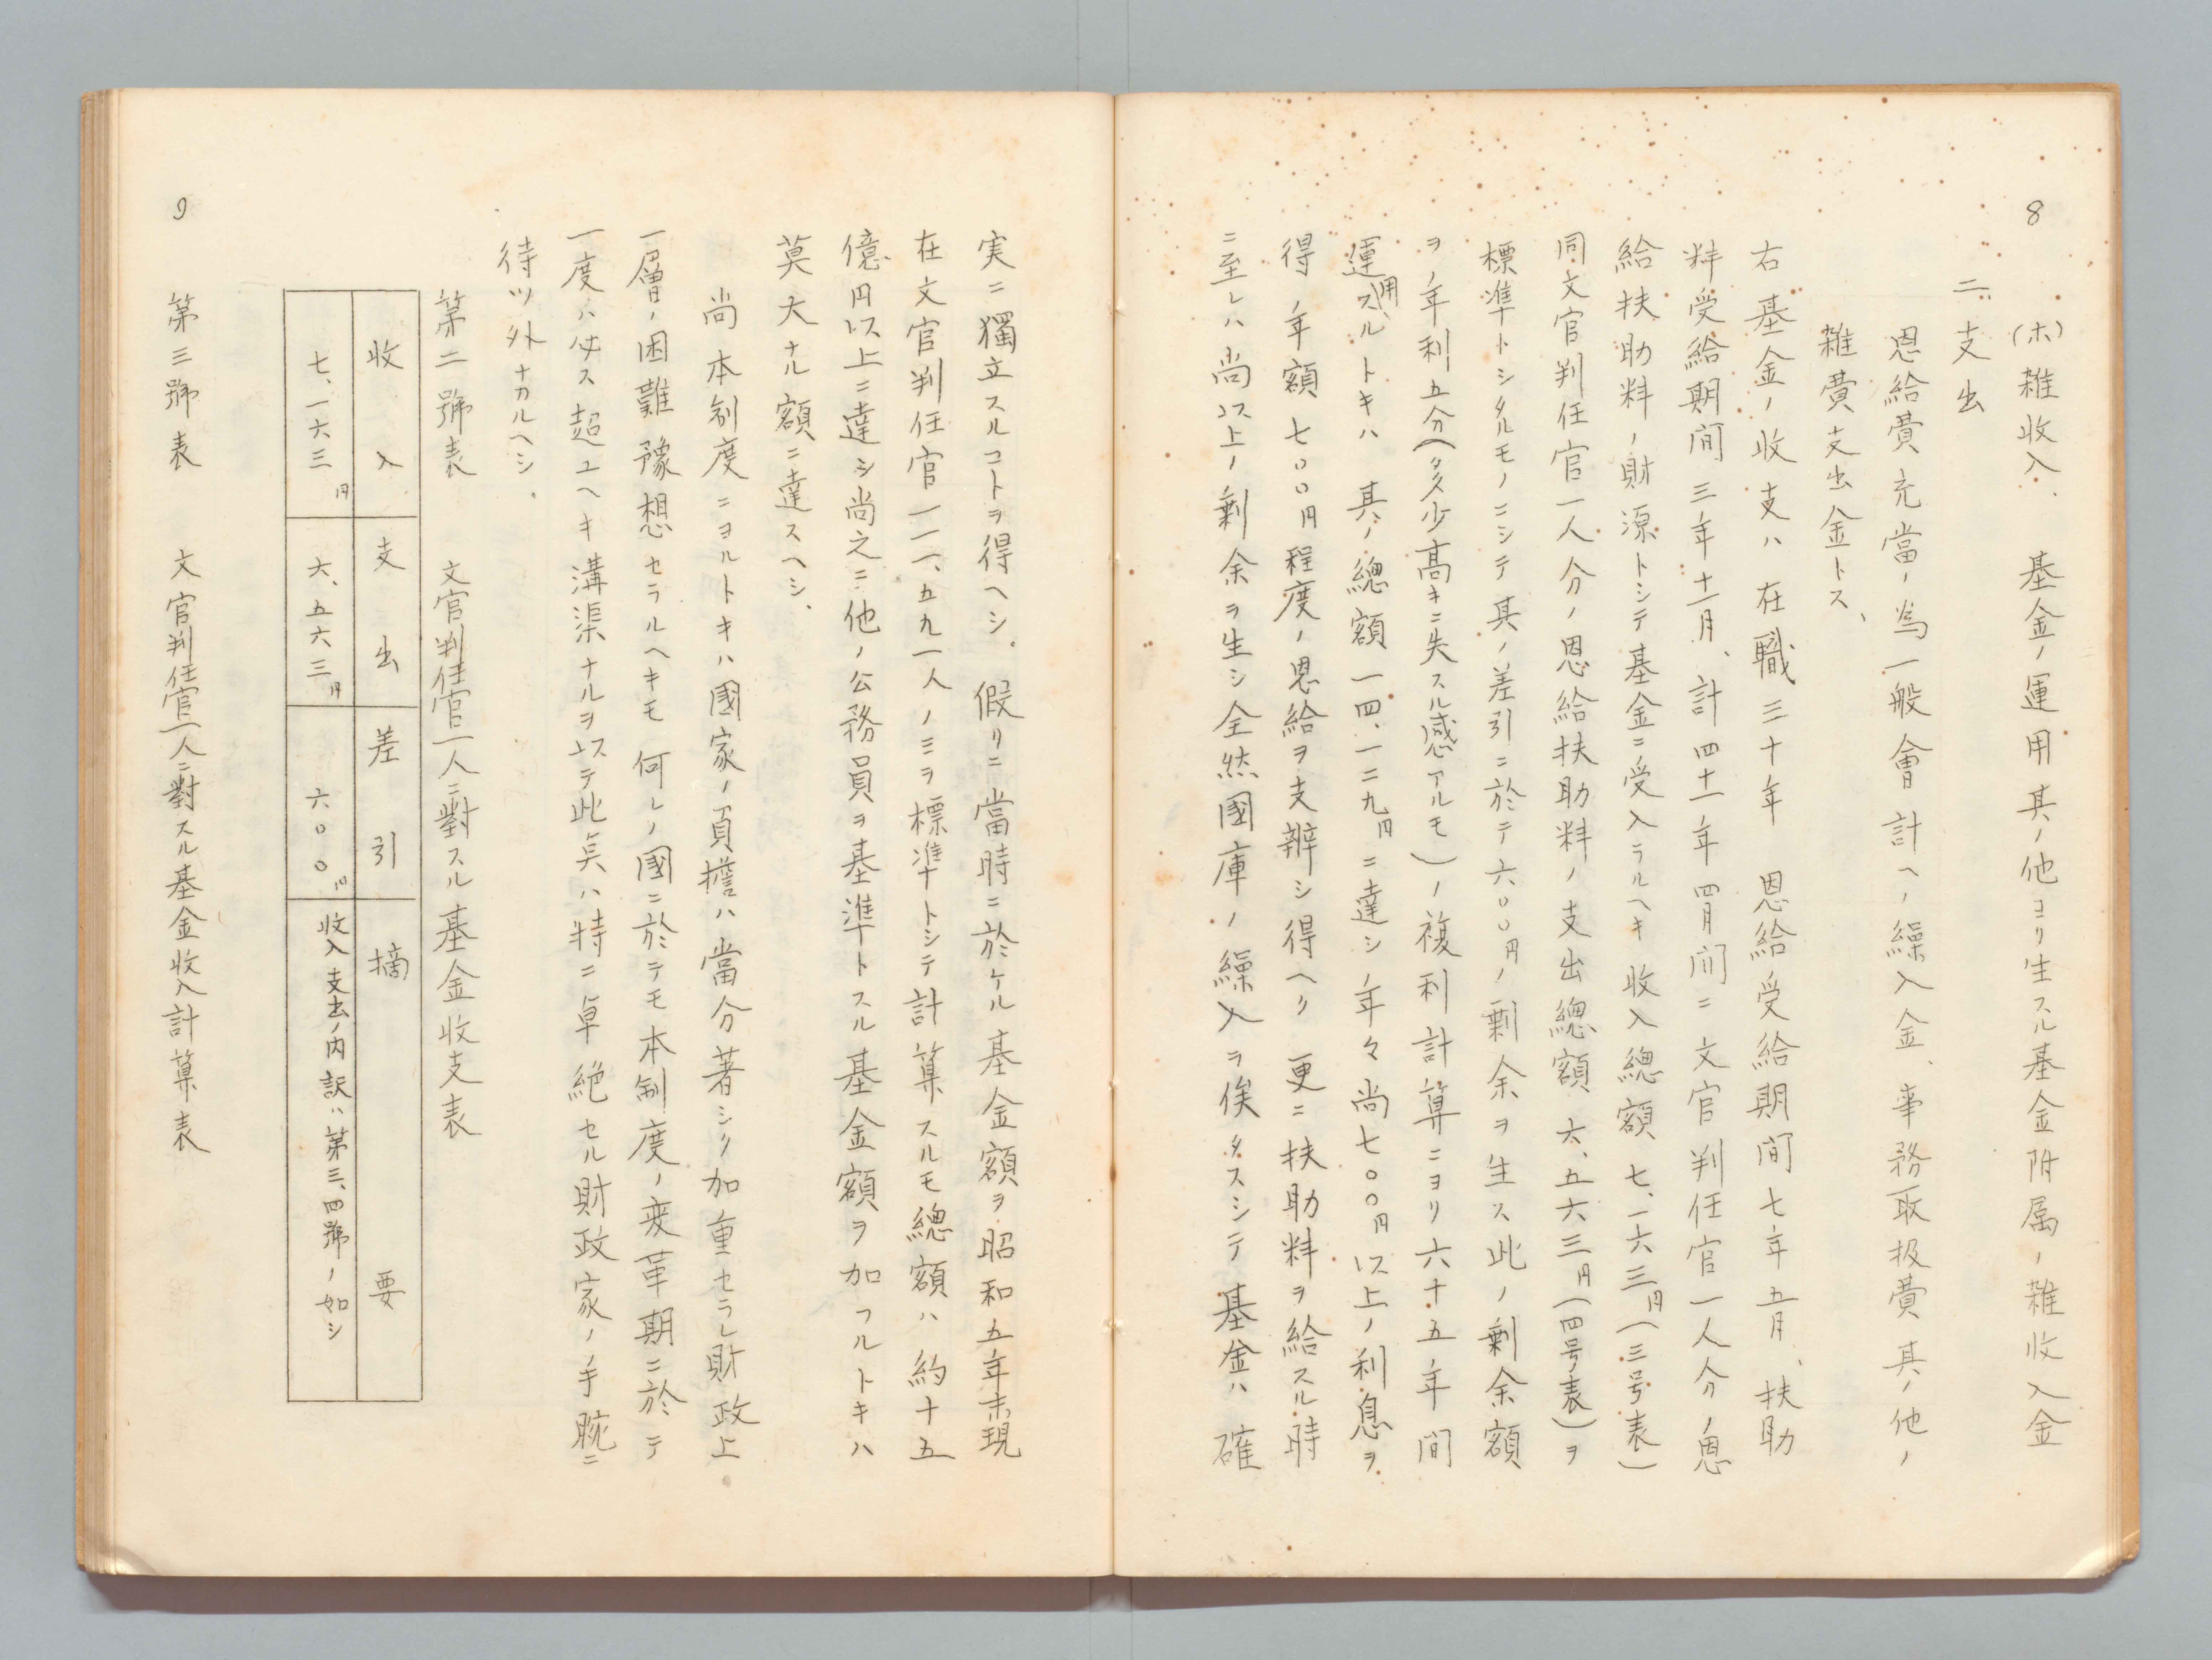 8
(ホ)雑收入、 基金ノ運用其ノ他ヨリ生スル基金附属ノ雑收入金
二、支出
恩給費充當ノ為一般會計ヘノ繰入金、事務取扱費其ノ他ノ
雑費支出金トス、
右基金ノ收支ハ在職三十年 恩給受給期間七年五月、扶助
料受給期間三年十一月、計四十一年四月間ニ文官判任官一人分ノ恩
給扶助料ノ財源トシテ基金ニ受入ラルヘキ收入總額七、一六三円(三号表)
同文官判任官一人分ノ恩給扶助料ノ支出總額六、五六三円(四号表)ヲ
標準トシタルモノニシテ其ノ差引ニ於テ六〇〇円ノ剰余ヲ生ス此ノ剰余額
ヲノ年利五分(多少高キニ失スル感アルモ)ノ複利計算ニヨリ六十五年間
運用スルトキハ其ノ總額一四、一二九円ニ達シノ年々尚七〇〇円以上ノ利息ヲ
得ノ年額七〇〇円程度ノ恩給ヲ支辨シ得ヘク 更ニ扶助料ヲ給スル時
ニ至レハ尚以上ノ剰余ヲ生シ全然國庫ノ繰入ヲ俟タスシテ 基金ハ確
実ニ獨立スルコトヲ得ヘシ、假リニ當時ニ於ケル基金額ヲ昭和五年末現
在文官判任官一一一、五九一人ノミヲ標準トシテ計算スルモ總額ハ約十五
億円以上ニ達シ尚之ニ他ノ公務員ヲ基準トスル基金額ヲ加フルトキハ
莫大ナル額ニ達スヘシ、
尚本制度ニヨルトキハ國家ノ負擔ハ當分著シク加重セラレ財政上
一層ノ困難豫想セラルヘキモ何レノ國ニ於テモ本制度ノ変革期ニ於テ
一度ハ必ス超ユヘキ溝渠ナルヲ以テ此ノ点ハ特ニ卓絶セル財政家ノ手腕ニ
待ツ外ナカルヘシ、
第二號表 文官判任官一人ニ對スル基金收支表
收入 支出 差引 摘要
七、一六三円 六、五六三円 六〇〇円 收入支出ノ内訳ハ第三、四號ノ如シ
第三號表 文官判任官一人ニ對スル基金收入計算表
9